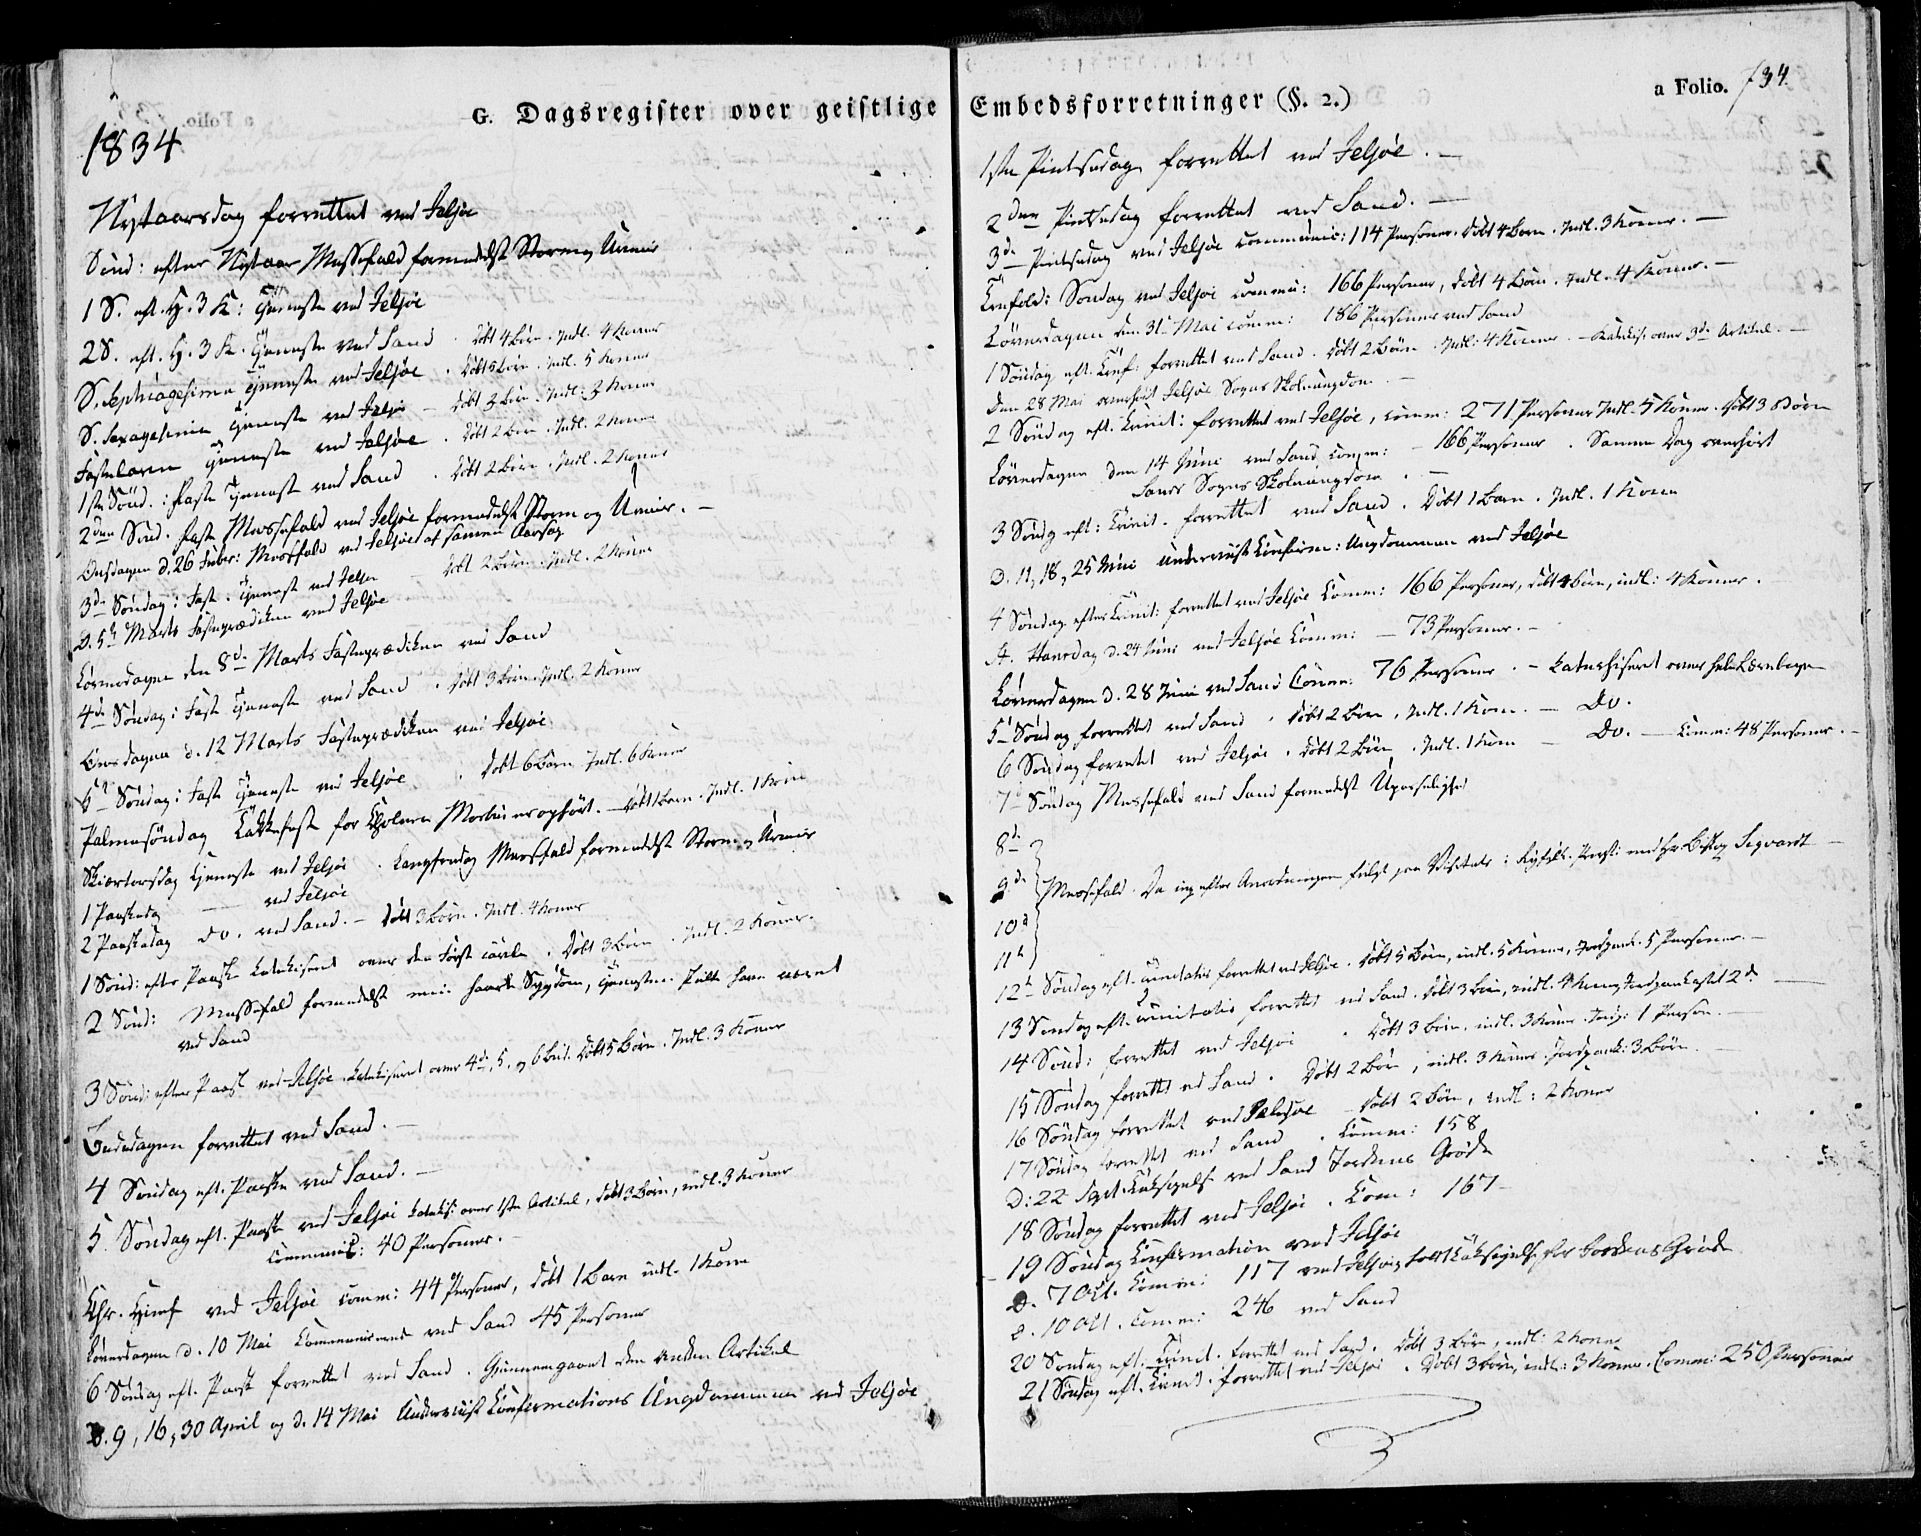 G. Dagsregister over geistlige
1834
Nytaarsdag forrettet ved Jelsøe
Sønd: efter Nytaar Messefald formedelst Storm og Uveir
1 S. eft. H. 3 K: Tjeneste ved Jelsøe
2 S. eft. H. 3 K. Tjeneste ved Sand . Døbt 4 Børn . Indl. 4 Koner
S. Septuagesima Tjeneste ved Jelsøe . Døbt 5 Børn . Indl. 5 Koner
S. Sexagesima Tjeneste ved Jelsøe – Døbt 3 Børn . Indl: 3 Koner
Fastelavn Tjeneste ved Jelsøe . Døbt 2 Børn . Indl. 2 Koner
1ste Sønd. i Faste Tjenest ved Sand . Døbt 2 Børn . Indl. 2 Koner
2den Sønd. Faste Messefald ved Jelsøe formedelst Storm og Uveir. –
Onsdagen d. 26 Febr: Messfald ved Jelsøe af samme Aarsag
3de Søndag i Fast . Tjenest ved Jelsøe – Døbt 2 Børn . Indl. 2 Koner
D. 5te Marts Fasteprædiken ved Jelsøe
Løverdagen den 8de Marts Fasteprædiken ved Sand
4de Søndag i Fast Tjeneste ved Sand . Døbt 3 Børn . Indl. 2 Koner
Onsdagen d. 12 Marts Fasteprædiken ved Jelsøe
5te Søndag i Fast Tjeneste ved Jelsøe . Døbt 6 Børn Indl. 6 Koner
Palmesøndag Takkefest for Cholera Morbus er ophørt. – Døbt 1 Barn . Indl. 1 Kone
Skiertorsdag Tjeneste ved Jelsøe . Langfredag Messfald formedelst Storm og Uveir
1 Paaskedag — ved Jelsøe
2 Paaskedag Do. ved Sand. – Døbt 3 Børn . Indl. 4 Koner
1 Sønd: efter Paaske Katekiseret over den Første . Døbt 3 Børn . Indl. 2 Koner.
2 Sønd: Messefald formedelst min haarde Sygdom, Tjenesten skulde have været
ved Sand
3 Sønd: efter Paask ved Jelsøe Katekiseret over 4de, 5, og 6 Bud. Døbt 5 Børn . Indl. 3 Koner
Bededagen forrettet ved Sand. –
4 Søndag eft. Paaske ved Sand. –
5. Søndag eft. Paask ved Jelsøe Katekis: over 1ste Artikel, Døbt 3 Børn, indl. 3 Koner
Communic: 40 Personer. –
Chr. Himf ved Jelsøe Comm: 44 Personer, Døbt 1 Barn indl. 1 Kone
Løverdagen d. 10 Mai Communiceret ved Sand 45 Personer
6 Søndag eft. Paask forrettet ved Sand . Giennemgaaet den anden Artikel
D. 9, 16, 30 April og d. 14 Mai Underviist Confirmations Ungdommen ved Jelsøe
Embedsforretninger (§. 2.)
a Folio. 734
1ste Pintsedag forrettet ved Jelsøe. –
2den Pintsedag forrettet ved Sand. –
3de Pintsedag ved Jelsøe Communic: 114 Personer. Døbt 4 Børn . Indl. 3 Koner. –
Trefold: Søndag ved Jelsøe Commu: 166 Personer, Døbt 4 Børn . Indl. 4 Koner. –
Løverdagen den 31te Mai Comm: 186 Personer ved Sand
1 Søndag eft. Tref: forrettet ved Sand . Døbt 2 Børn . Indl: 4 Koner – Katekis: over 3de Artikel. –
Den 28 Mai overhørt Jelsøe Sogns Skoleungdom . –
2 Søndag eft. Trinit: forrettet ved Jelsøe, Comm: 271 Personer Indl. 5 Koner. Døbt 3 Børn
Løverdagen den 14 Juni ved Sand Comm: – 166 Personer . Samme Dag overhørt
Sands Sogns Skoleungdom . –
3 Søndg eft: Trinit. forrettet ved Sand . Døbt 1 Barn . Indl. 1 Kone
D. 11, 18, 25 Juni underviist Confirm: Ungdommen ved Jelsøe
4 Søndag efter Trinit: forrettet ved Jelsøe Comm: 166 Personer, Døbt 4 Børn, indl: 4 Koner.
St. Hansdag d. 24 Juni ved Jelsøe Comm: – 73 Personer. –
Løverdagen d. 28 Juni ved Sand Comm: 76 Personer . – Katechiseret over hele Lærebogen
5te Søndag forrettet ved Sand . Døbt 2 Børn . Indl. 1 Kone. – Do.
6 Søndag forrettet ved Jelsøe . Døbt 2 Børn . Indl. 1 Kone – Do. – Comm: 48 Personer. –
7de Søndag Messefald ved Sand formedelst Upasselighed
8de
9de Messefald. Da jeg efter Anordningen fulgt paa Visitats i Ryfylk. Provsti med Hr. Biskop Sigvardt –
10de
11te
12te Søndag eft. Trinitatis forrettet ved Jelsøe . Døbt 5 Børn, indl. 5 Koner, Jordpaak. 5 Personer. –
13 Søndag eft. Trinitatis forrettet ved Sand . Døbt 3 Børn, indl. 4 Koner, Jordpaakastet 2de –
14 Sønd: forrettet ved Jelsøe . Døbt 3 Børn, indl. 3 Koner . Jordp: 1 Person. –
15 Søndag forrettet ved Sand . Døbt 2 Børn, indl. 3 Koner . Jordpaak: 3 Børn. –
16 Søndag forrettet ved Jelsøe – Døbt 2 Børn, indl: 2 Koner
17 Søndag forrettet ved Sand . Comm: 158
D: 22 Sept. Taksigelse ved Sand Jordens Grøde
18 Søndag forrettet ved Jelsøe . Com: 167 –
19 Søndag Confirmation ved Jelsøe
D. 7 Oct. Comm: 117 ved Jelsøe, holdt Taksigelse for Jordens Grøde
D. 10 Oct . Comm: 246 ved Sand
20 Søndag eft. Trinit. forrettet ved Sand . Døbt 3 Børn, indl: 2 Koner
21 Søndag eft. Trinit. forrettet ved Jelsøe . Døbt 3 Børn, indl: 3 Koner. Comm: 250 Personer